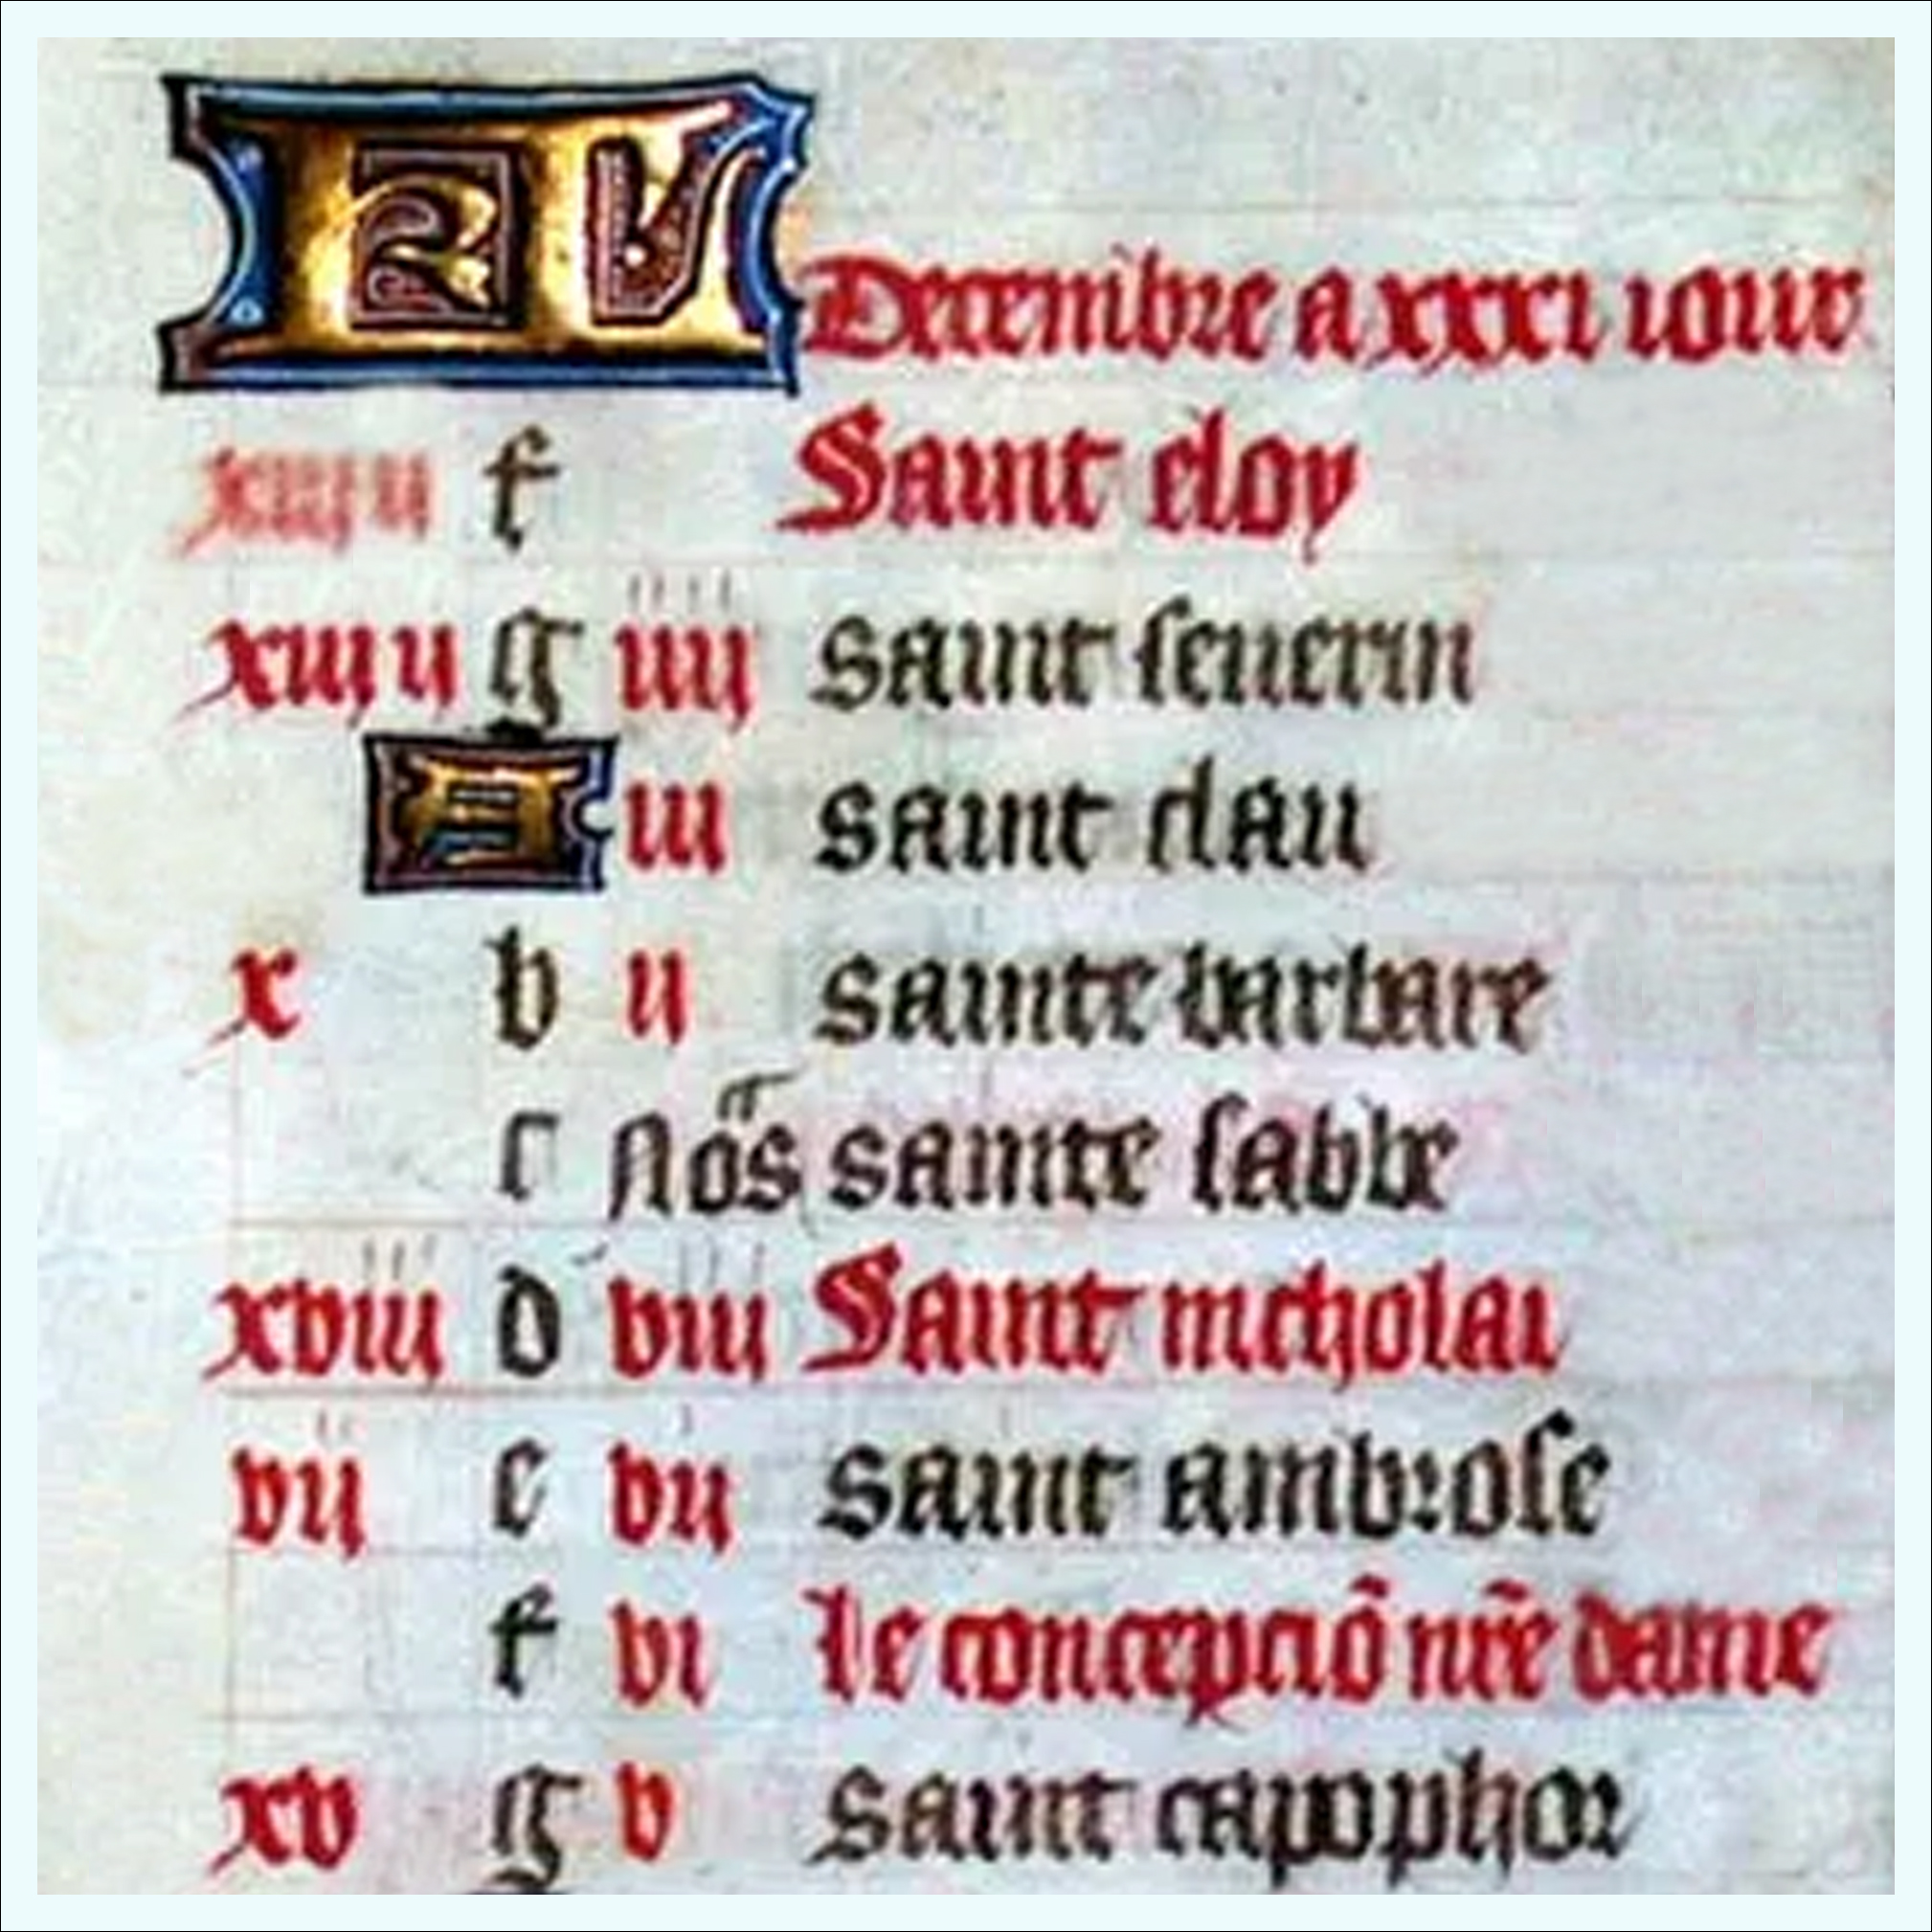 KL Decembre a xxxi iour
xiiij ii f Saint eloy
xiij ii g iiij saint seuerin
A iii saint clau
x b ii sainte barbare
c Nos sainte sabbe
xviii d viii Saint nicholai
vii e vii saint ambrose
f vi le concepciõ nr̃e dame
xv g v saint capophor